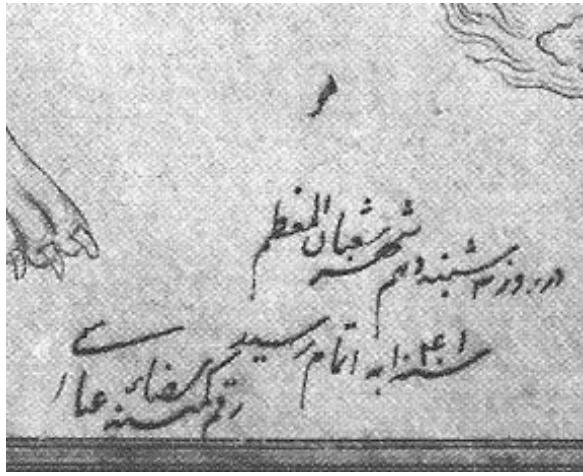 هو
در روز ۳ شنبه دهم شهر شعبان المعظم
سنه ۱۰۴۱ به اتمام رسید
رقم کمینه رضاء عباسی